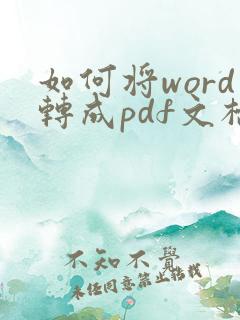 如何将word
轉成pdf文檔
不知不覺
未经同意禁止搭载